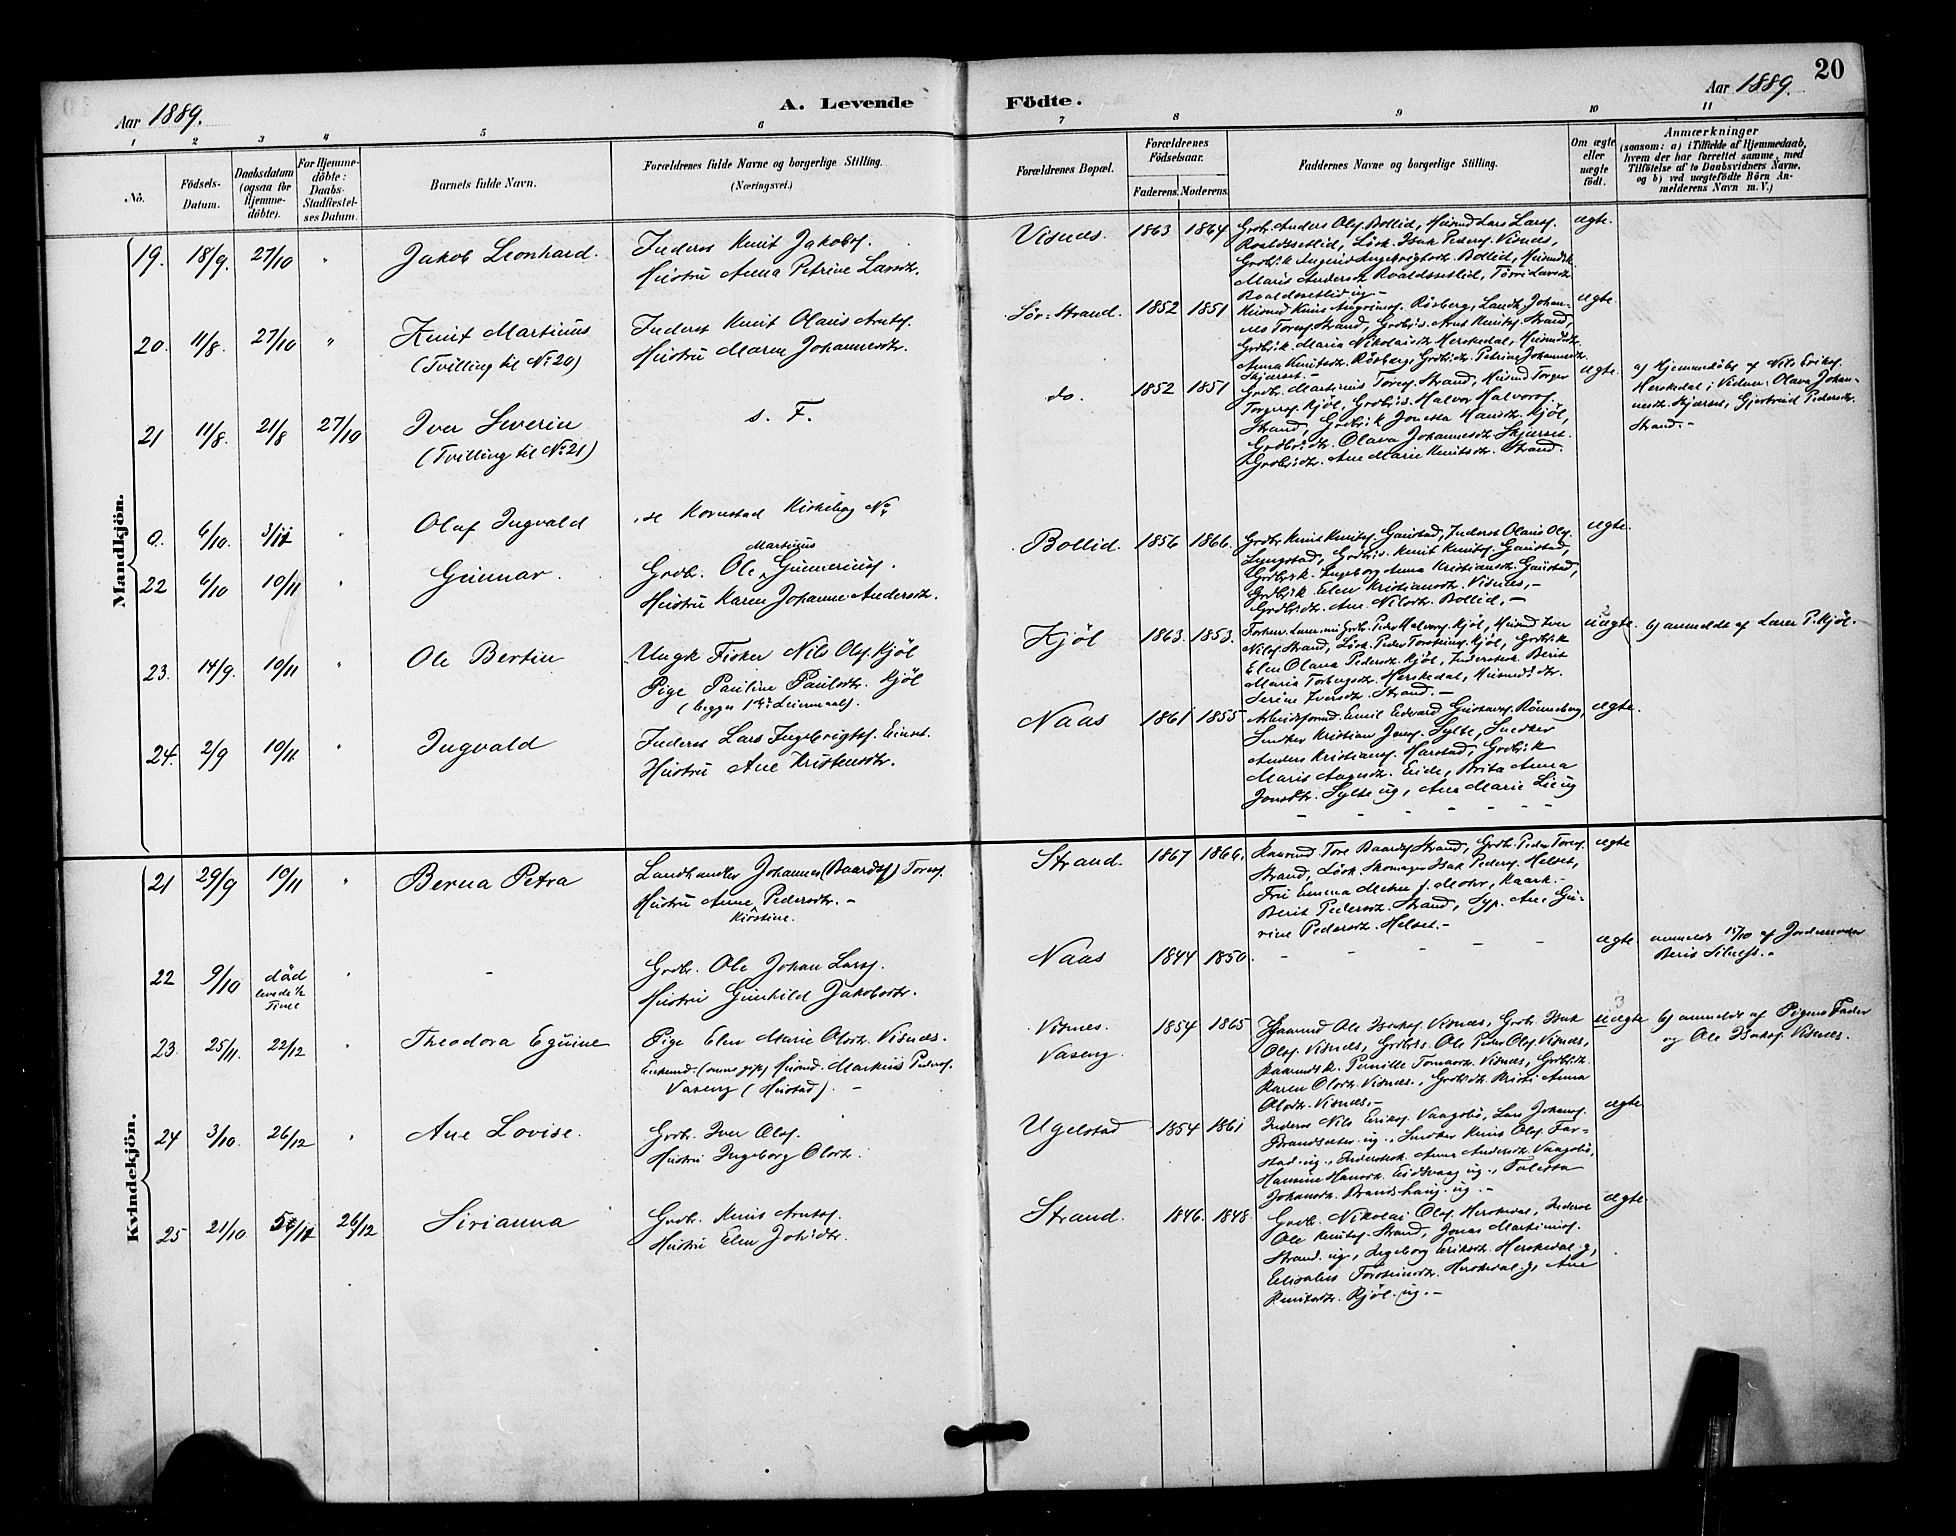 20
Aar 1889.
A. Levende
Födte.
Aar 1889.
1 2 3 4 5 6 7 8 9 10 11
No.
Födsels-
Datum.
Daabsdatum
(ogsaa for
Hjemme-
döbte).
For Hjemme-
döbte:
Daabs-
Stadfæstel-
ses Datum.
Barnets fulde Navn.
Forældrenes fulde Navne og borgerlige Stilling.
(Næringsvei.)
Forældrenes Bopæl.
Forældrenes
Födselsaar.
Faderens. Moderens.
Faddernes Navne og borgerlige Stilling.
Om ægte
eller
uægte
födt.
Anmærkninger
(saasom: a) i Tilfælde af Hjemmedaab,
hvem der har forrettet samme, med
Tilföielse af to Daabsvidners Navne.
og b) ved uægtefödte Börn An-
melderens Navn m. V.)
Mandkjön.
19. 18/9. 27/10 " Jakob Leonhard.
Inderst Knut Jakobs.
Hustru Anna Petrine Larsdtr.
Visnes. 1863 1864
Grdb. Anders Ols. Bollid, Husmd Lars Larss.
Roaldssetlid, Lösk. Isak Peders. Visnes,
Maris Andersdtr. Roaldssetlid,
Roaldssetlid ug –
ægte.
20. 11/8. 27/10 " Knut Martinus
(Tvilling til No 20)
Inderst Knut Olaus Arnts.
Hustru Maren Johannesdtr.
Sör-Strand. 1852 1851
nes Tores. Strand, Grdbrs. Arnt Knuts. Strand,
Grdbr.k. Maria Nikolaisdtr. Herskedal,
Anna Knutsdtr. Rösberg, Grdb.dtr. Petrine Johannesdtr.
Skjærset. –
ægte.
21 11/8. 21/8 27/10 Iver Severin
(Tvilling til No 21)
s. F.
do. 1852 1851
Grdbr. Martinus Tores. Strand, Husmd Torger
Torgers. Kjöl, Grdbrs. Halvor Halvors.
Strand, Grdbr.k. Jonetta Hansdtr. Kjöl,
Grdbrdtr. Olava Johannesdtr. Skjærset.
Grdbrdtr. Ane Marie Knutsdtr. Strand.
ægte.
a) Hjemmedöbt af Nils Eriks.
Herskedal; Vidner: Olava Johan-
nesdtr. Skjærset, Gjertrud Pedersdtr.
Strand. –
0. 6/10. 3/11 " Olaf Ingvald
se Kornstad Kirkebog No
22 6/10 10/11 " Gunnar.
Grdb. Ole Martinus Gunnerius.
Hustru Karen Johanne Andersdtr.
Bollid. 1856 1866.
Grdbr Knut Knuts. Gaustad, Inderst Olaus Ols.
Lyngstad, Grdbrs. Knut Knuts. Gaustad,
Grdbr.k. Ingeborg Anna Kristiansdtr. Gaustad,
Grdbr.k. Elen Kristiansdtr. Visnes, –
Grdbrdtr. Ane Nilsdtr. Bollid. –
ægte.
23. 14/9. 10/11 " Ole Bertin
Ungk Fisker Nils Ols. Kjöl
Pige Pauline Paulsdtr. Kjöl
(begges 1ste Leiermaal).
Kjöl 1863. 1853.
Nils. Strand, Lösk. Peder Torsteins. Kjöl, Grdbr.k.
Elen Olava Pedersdtr. Kjöl, Inderstk. Berit
Maria Torbergsdtr. Herskedal, Husmd.dtr.
Serine Iversdtr. Strand. –
uægte.
b) anmeldt af Laren P. Kjöl.
24. 2/9 10/11. " Ingvald
Inderst Lars Ingebrigts.
Hustru Ane Kristensdtr.
Naas 1861 1855
Arbeidsformd. Emil Edvard Gustavs. Rönneberg,
Snedker Kristian Jons. Sylte, Snedker
Anders Kristians. Harstad, Grdbr.k
Maris Aagesdtr. Eide, Brita Anna
Jonsdtr. Sylte ug, Ane Marie Lie ug
– – – – –
ægte.
Kvindekjön.
21 29/9 10/11 " Berna Petra
Landhandler Johannes (Baards.) Tores.
Hustru Anne Kirstine Pedersdtr. –
Strand. 1867 1866.
Kaarmd Tore Baards. Strand, Grdb. Peder Tores.
Strand, Lösk. Skomager Isak Peders. Helset,
Berit Pedersdtr. Strand, Syp. Ane Gu-
rine Pedersdtr. Helset. –
ægte
22 9/10 död
levede 1/2
Time " –
Grdbr. Ole Johan Larss.
Hustru Gunhild Jakobsdtr.
Naas 1844 1850.
– – – – –
ægte
anmeldt 15/10 af Jordemoder
23 25/11. 22/12 " Theodora Eguine
Pige Elen Marie Olsdtr. Visnes.
Enkemd. (nu gift) Husmd. Markus Peders.
Vaseng (Hustad). –
Visnes.
Vaseng. 1854 1865
Kaarmd Ole Isaks. Visnes, Grdb. Isak
Ols. Visnes, Grdbrs. Ole Peder Ols. Visnes,
Kaarmdsk. Pernille Tomasdtr. Visnes, Grdbrdtr.
Karen Olsdtr. Visnes., Grdbrdtr. Kristi Anna
Olsdtr. Visnes, –
uægte
b) anmeldt af Pigens Fader
og Ole Isaks. Visnes.
24 3/10. 26/12 " Ane Lovise.
Grdb. Iver Ols.
Hustru Ingeborg Olsdtr.
Ugelstad 1854 1861
Inderst Nils Eriks. Vaagsbö, Lars Johans.
Brandsæter ug., Snedker Knut Ols. Far-
stad ug., Inderstk. Anna Andersdtr. Vaagsbö,
Hansine Hansdtr. Eidsvaag ug.,
Johansdtr. Brandshaug. ug. –
ægte
25 21/10 5/11 26/12 Sirianna
Grdb. Knut Arnts.
Hustru Elen Johsdtr.
Strand. 1846. 1848.
Grdb. Nikolai Ols. Herskedal, Inderst
Ole Knuts. Strand, Jonas Martinus.
Strand. ug., Ingeborg Eriksdtr. Herskedal. g,
Elisabet Torsteinsdtr. Herskedal. g, Ane
Knutsdtr. Kjöl. ug. –
ægte